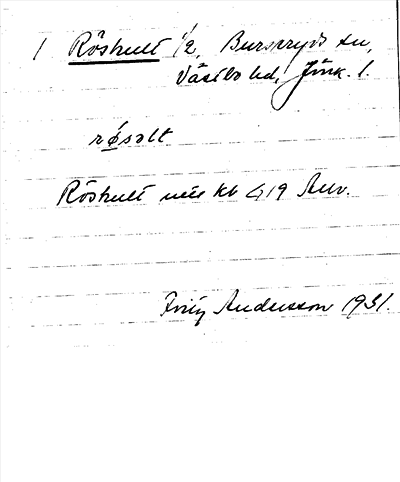 1 Röshult 1/2, Burseryds sn,
Västbo hd, Jönk. l.
rǿsølt
Röshult mtl kb 4,19 Auv.
Fritz Andersson 1931.